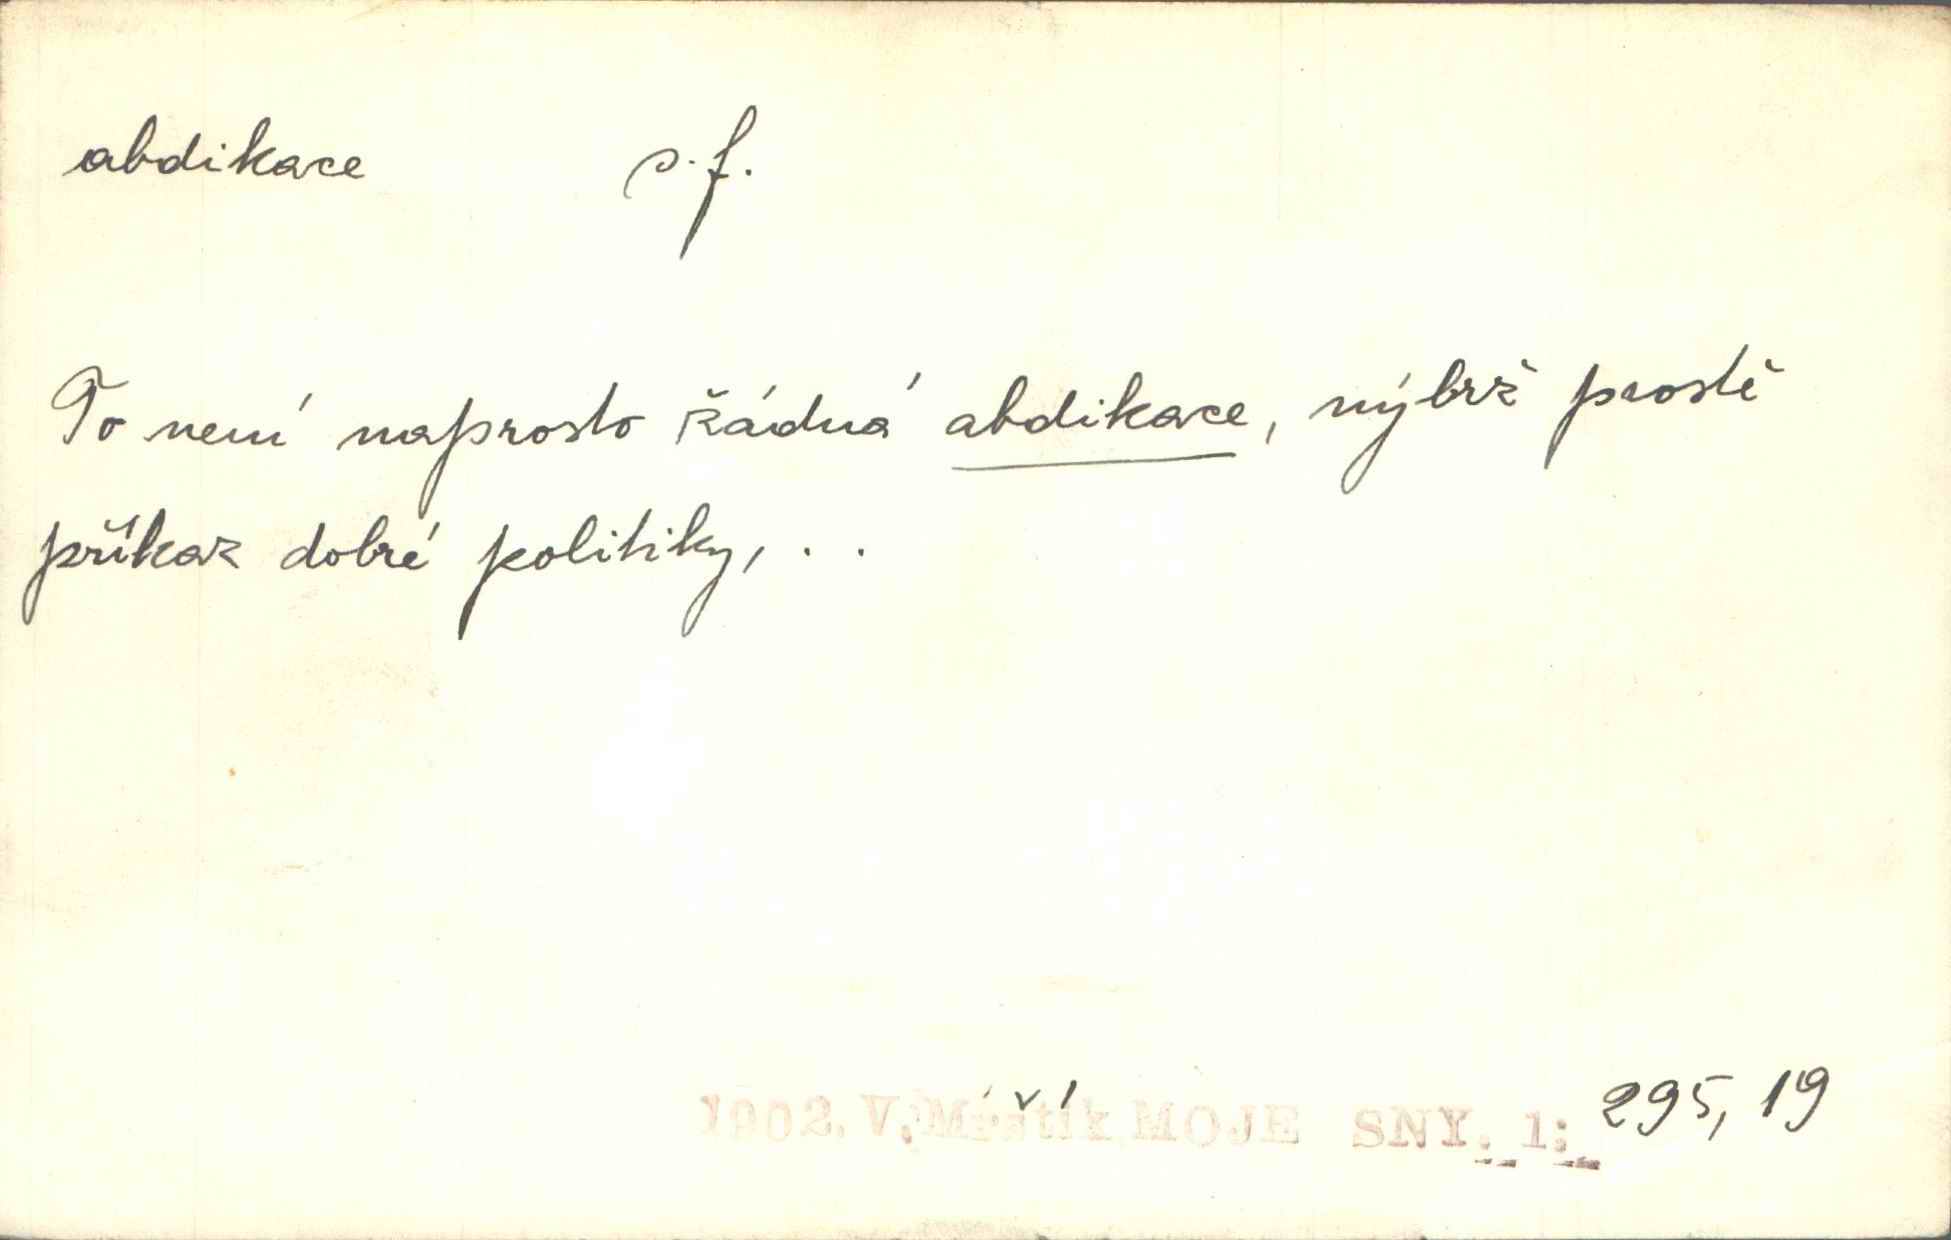 abdikace s.f.
To není naprosto žádná abdikace, nýbrž prostě
příkaz dobré politiky, . .
1902. V. Mrštík MOJE SNY. 1: 295, 19